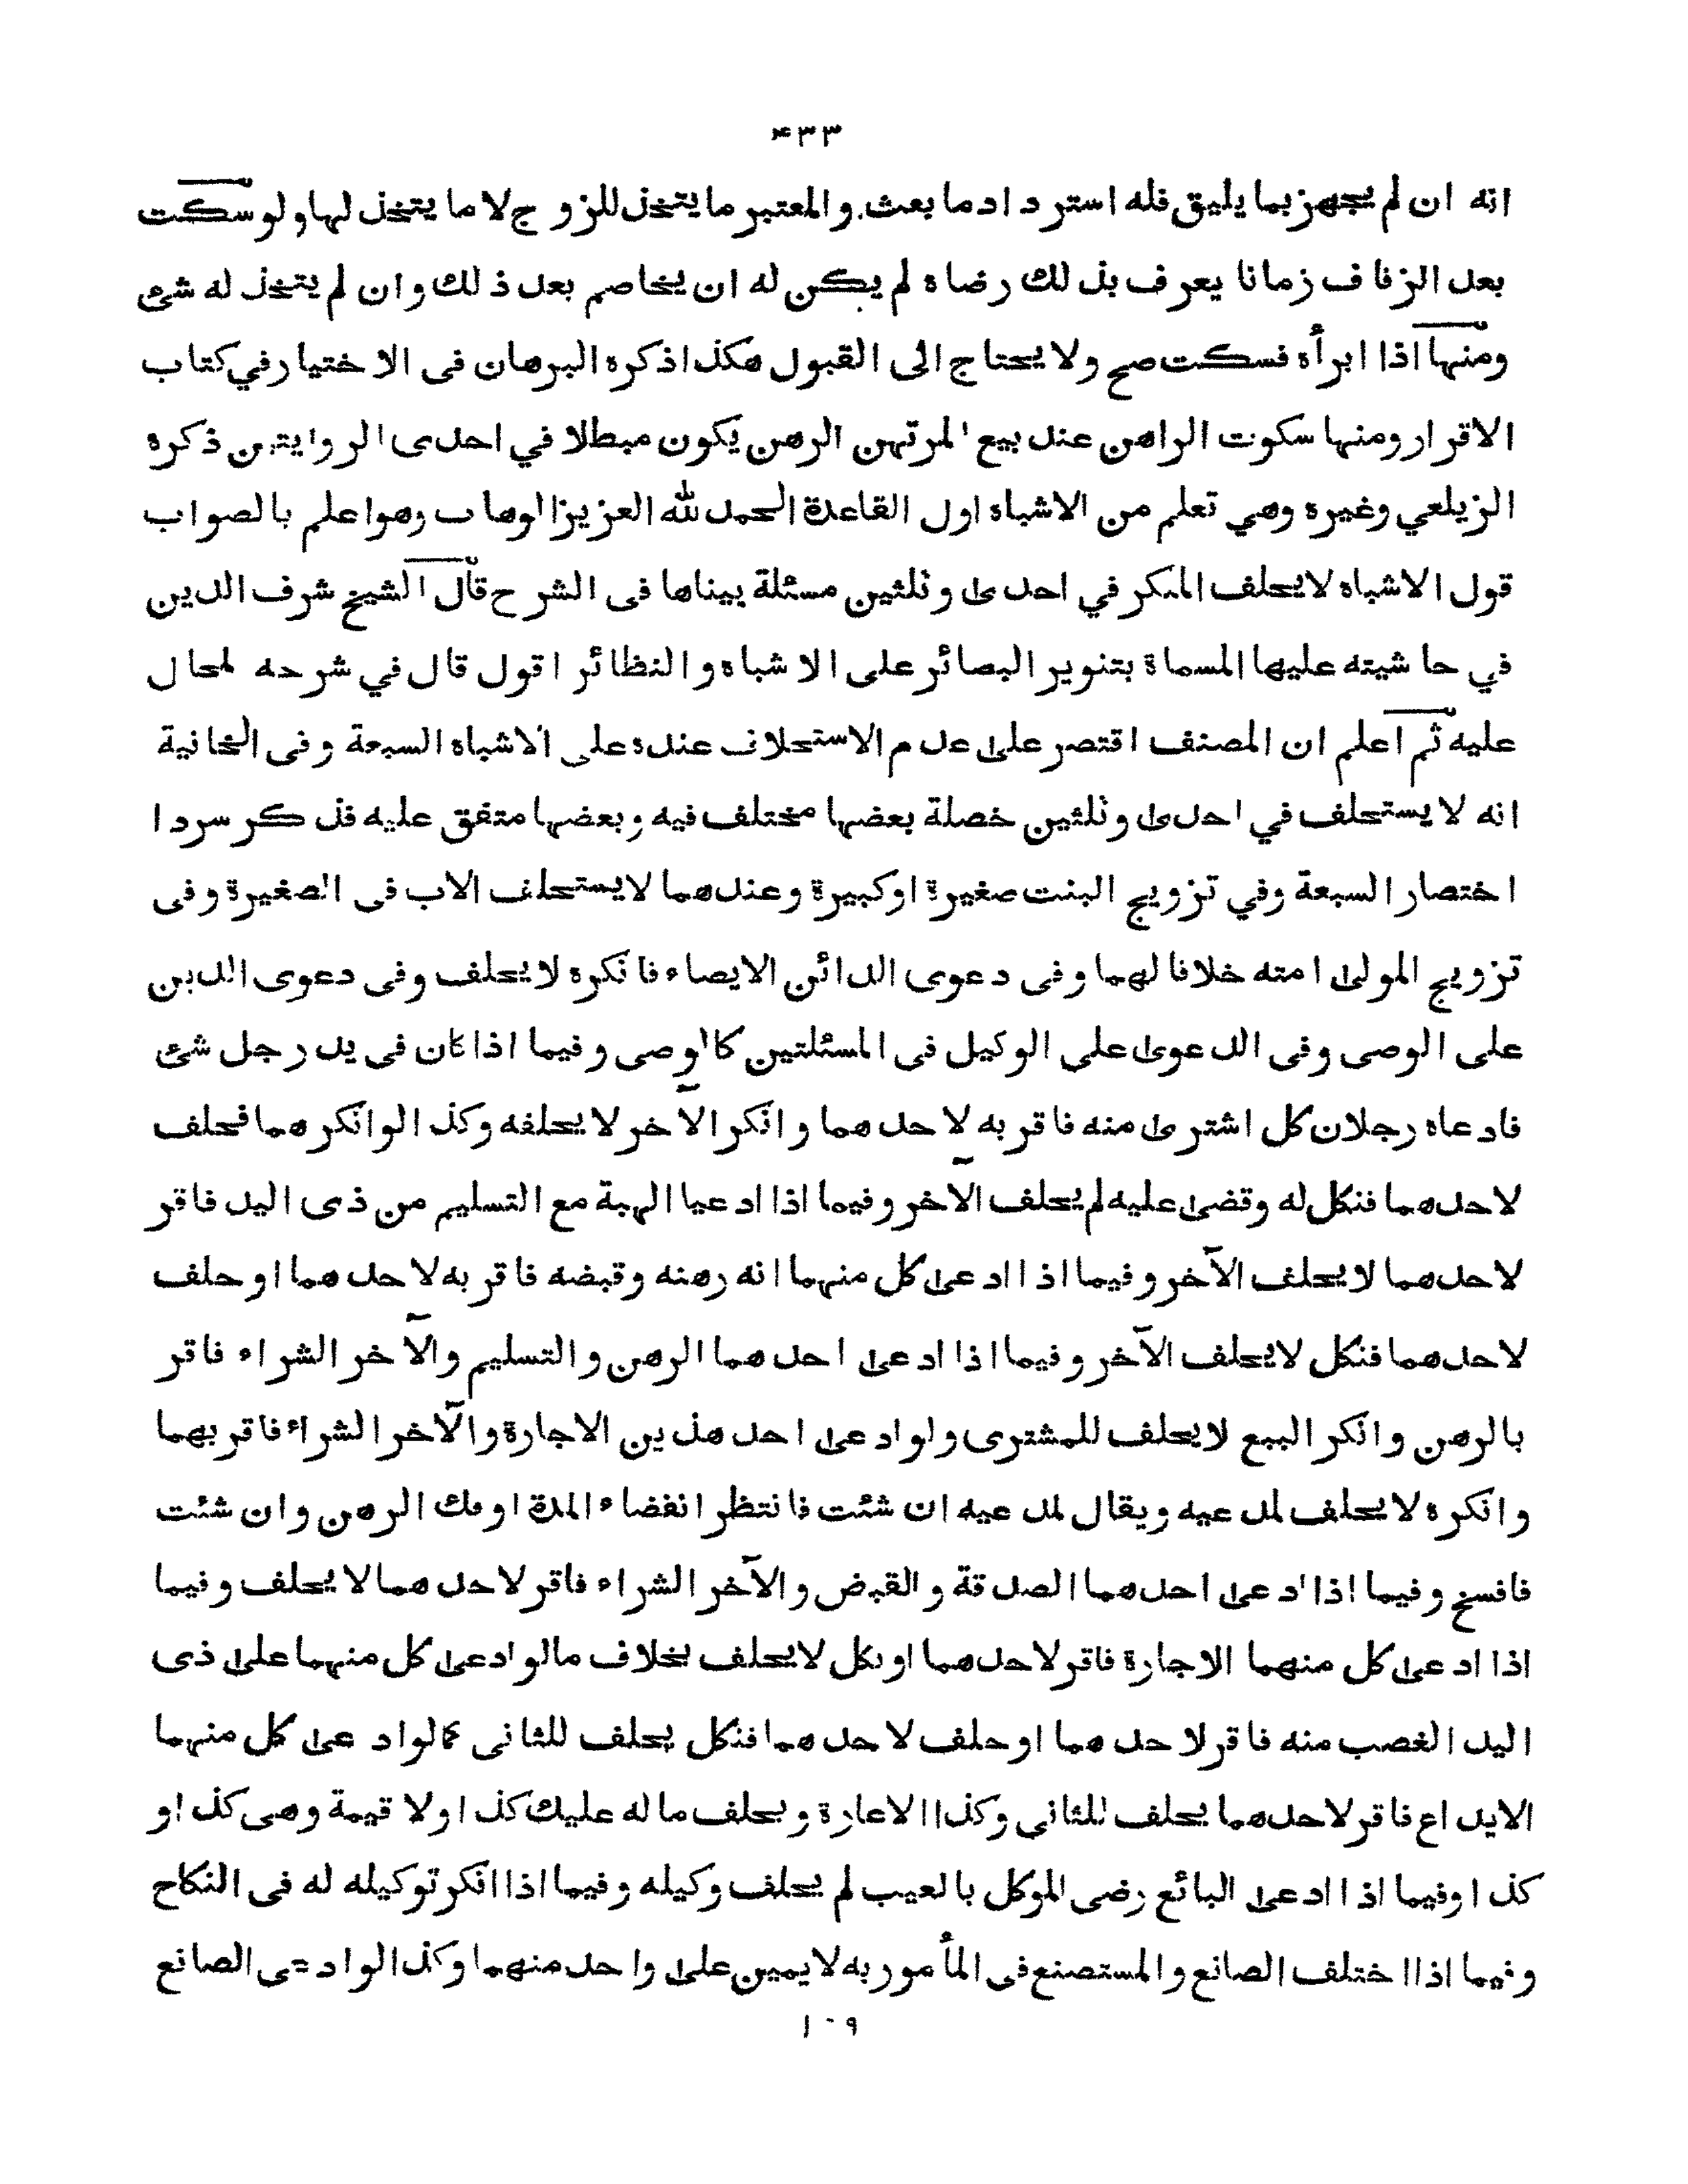 ۴۳۳
انه ان لم يجهز بما يليق فله استرداد ما بعث. والمعتبر ما يتخذ للزوج لا ما يتخذ لها ولو سكت
بعد الزفاف زمانا يعرف بذلك رضاه لم يكن له ان يخاصم بعد ذلك وان لم يتخذ له شئ
ومنها اذا ابرأه فسكت صح ولا يحتاج الى القبول هكذا ذكره البرهان فى الاختيار في كتاب
الاقرار ومنها سكوت الراهن عند بيع المرتهن الرهن يكون مبطلا في احدى الروايتين ذكره
الزيلعي وغيره وهي تعلم من الاشباه اول القاعدة الحمد لله العزيز الوهاب وهو اعلم بالصواب
قول الاشباه لا يحلف المنكر في احدى وثلثين مسئلة بيناها فى الشرح قال الشيخ شرف الدين
في حاشيته عليها المسماة بتنوير البصائر على الاشباه والنظائر اقول قال في شرحه لمحال
عليه ثم اعلم ان المصنف اقتصر على عدم الاستحلاف عنده على الاشباه السبعة وفى الخانية
انه لا يستحلف في احدى وثلثين خصلة بعضها مختلف فيه وبعضها متفق عليه فذكر سردا
اختصارا لسبعة وفي تزويج البنت صغيرة او كبيرة وعندهما لا يستحلف الاب فى الصغيرة وفى
تزويج المولى امته خلافا لهما وفى دعوى الدائن الايصاء فانكره لا يحلف وفى دعوى الدين
على الوصى وفى الدعوى على الوكيل فى المسئلتين كالوصى وفيما اذا كان فى يد رجل شئ
فادعاه رجلان كل اشترى منه فاقر به لاحدهما وانكر الآخر لا يحلفه وكذا لو انكرهما فحلف
لاحدهما فنكل له وقضى عليه لم يحلف الآخر وفيما اذا ادعيا الهبة مع التسليم من ذى اليد فاقر
لاحدهما لا يحلف الآخر وفيما اذا ادعى كل منهما انه رهنه وقبضه فاقر به لاحدهما او حلف
لاحدهما فنكل لا يحلف الآخر وفيما اذا ادعى احدهما الرهن والتسليم والآخر الشراء فاقر
بالرهن وانكر البيع لا يحلف للمشترى ولو ادعى احد هذين الاجارة والآخر الشراء فاقر بهما
وانكره لا يحلف لمدعيه ويقال لمدعيه ان شئت فانتظر انقضاء المدة او فك الرهن وان شئت
فافسخ وفيما اذا ادعى احدهما الصدقة والقبض والآخر الشراء فاقر لاحدهما لا يحلف وفيما
اذا ادعى كل منهما الاجارة فاقر لاحدهما او نكل لا يحلف بخلاف ما لو ادعى كل منهما على ذى
اليد الغصب منه فاقر لاحدهما او حلف لاحدهما فنكل يحلف للثانى كما لو ادعى كل منهما
الايداع فاقر لاحدهما يحلف للثاني وكذا الاعارة ويحلف ما له عليك كذا ولا قيمة وهى كذا و
كذا وفيما اذا ادعى البائع رضى الموكل بالعيب لم يحلف وكيله وفيما اذا انكر توكيله له فى النكاح
وفيما اذا اختلف الصانع والمستصنع فى المأمور به لا يمين على واحد منهما وكذا لو ادعى الصانع
۱۰۹